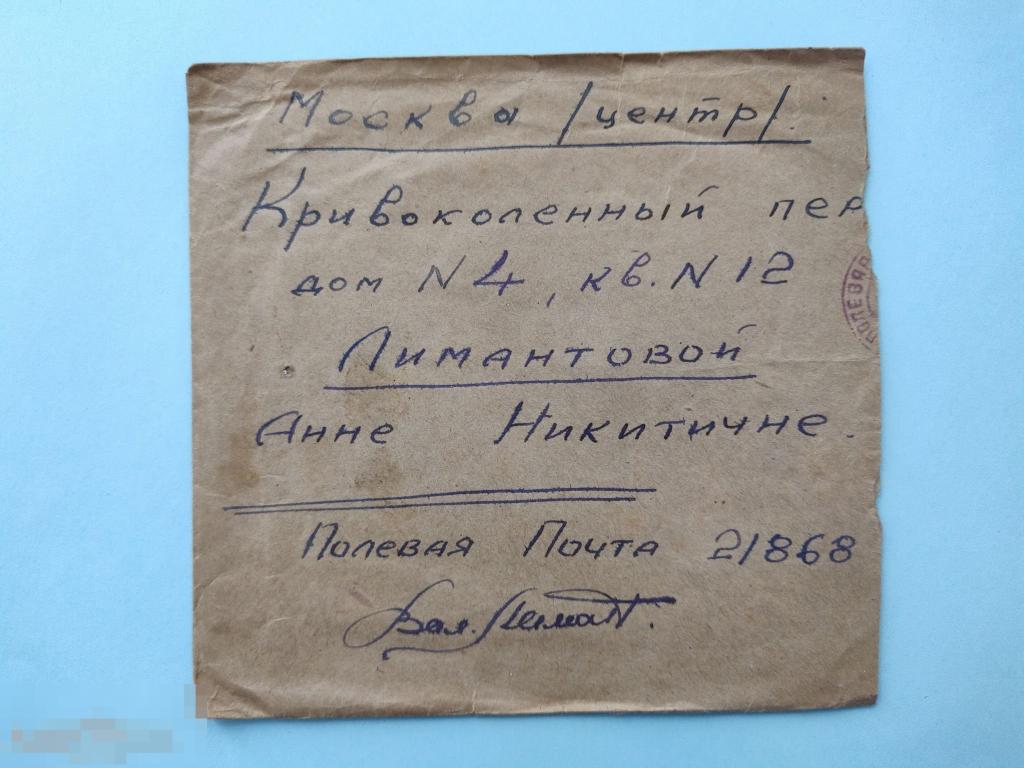 Москва /центр/.
Кривоколенный пер
дом N 4, кв. N 12
ПОЛЕВАЯ
Лимантовой
Анне Никитичне.
Полевая Почта 21868
Вал. Лимант.